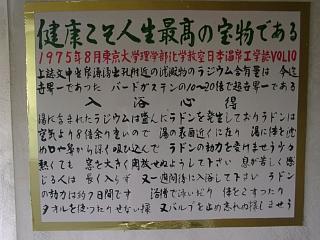 健康こそ人生最高の宝物である
1975年8月東京大学理学部化学教室日本温泉工学誌VOL10
上誌文中当岸湧湯出孔附近の沈澱物のラジウム含有量は 今迄
世界一であった バードガスデンの10〜20倍で超世界一である
入浴心得
湯に含まれたラジウムは盛んにラドンを発生しておりラドンは
空気より8倍余り重いので 湯の表面近くになり 湯に体を沈め
口や鼻から深く吸い込んで ラドンの効力を受けませうか
熱くても 窓を大きく開放せぬようして下さい 息が苦しく感
じる人は 長く入らず 又一週間後に入浴して下さい ラドン
の効力は約7日間です 浴槽で泳いだり 体をこすったり
タオルを使ったりせない様 又バルブを止め忘れぬ様しませう